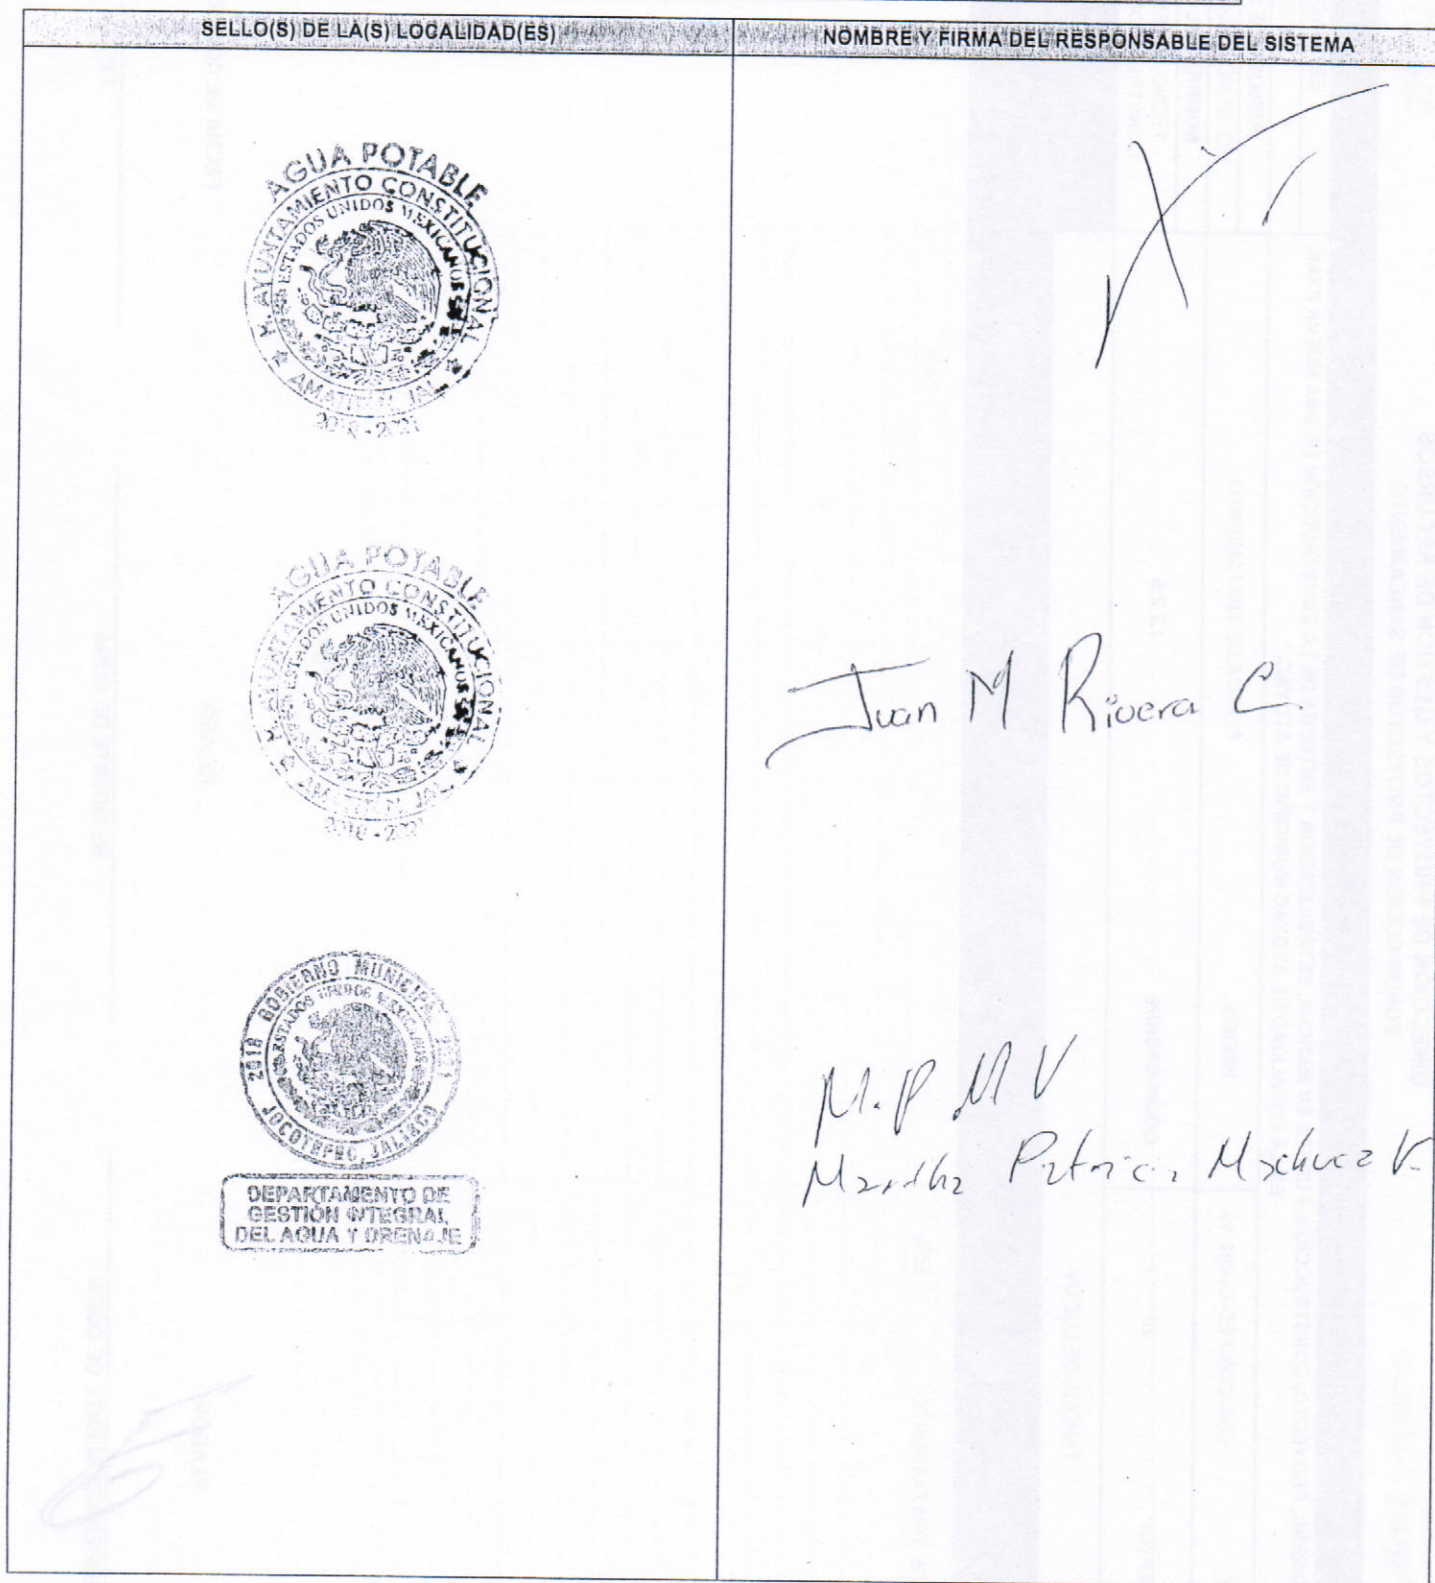 SELLO(S) DE LA(S) LOCALIDAD(ES)
NOMBRE Y FIRMA DEL RESPONSABLE DEL SISTEMA
AGUA POTABLE
H. AYUNTAMIENTO CONSTITUCIONAL
ESTADOS UNIDOS MEXICANOS
AMATITAN, JAL.
2018-2021
AGUA POTABLE
H. AYUNTAMIENTO CONSTITUCIONAL
ESTADOS UNIDOS MEXICANOS
AMATITAN, JAL.
2018-2021
Juan M Rivera C.
2018 GOBIERNO MUNICIPAL 2021
ESTADOS UNIDOS MEXICANOS
JOCOTEPEC, JALISCO
DEPARTAMENTO DE
GESTIÓN INTEGRAL
DEL AGUA Y DRENAJE
M.P. M V
Martha Patricia Machuca V.